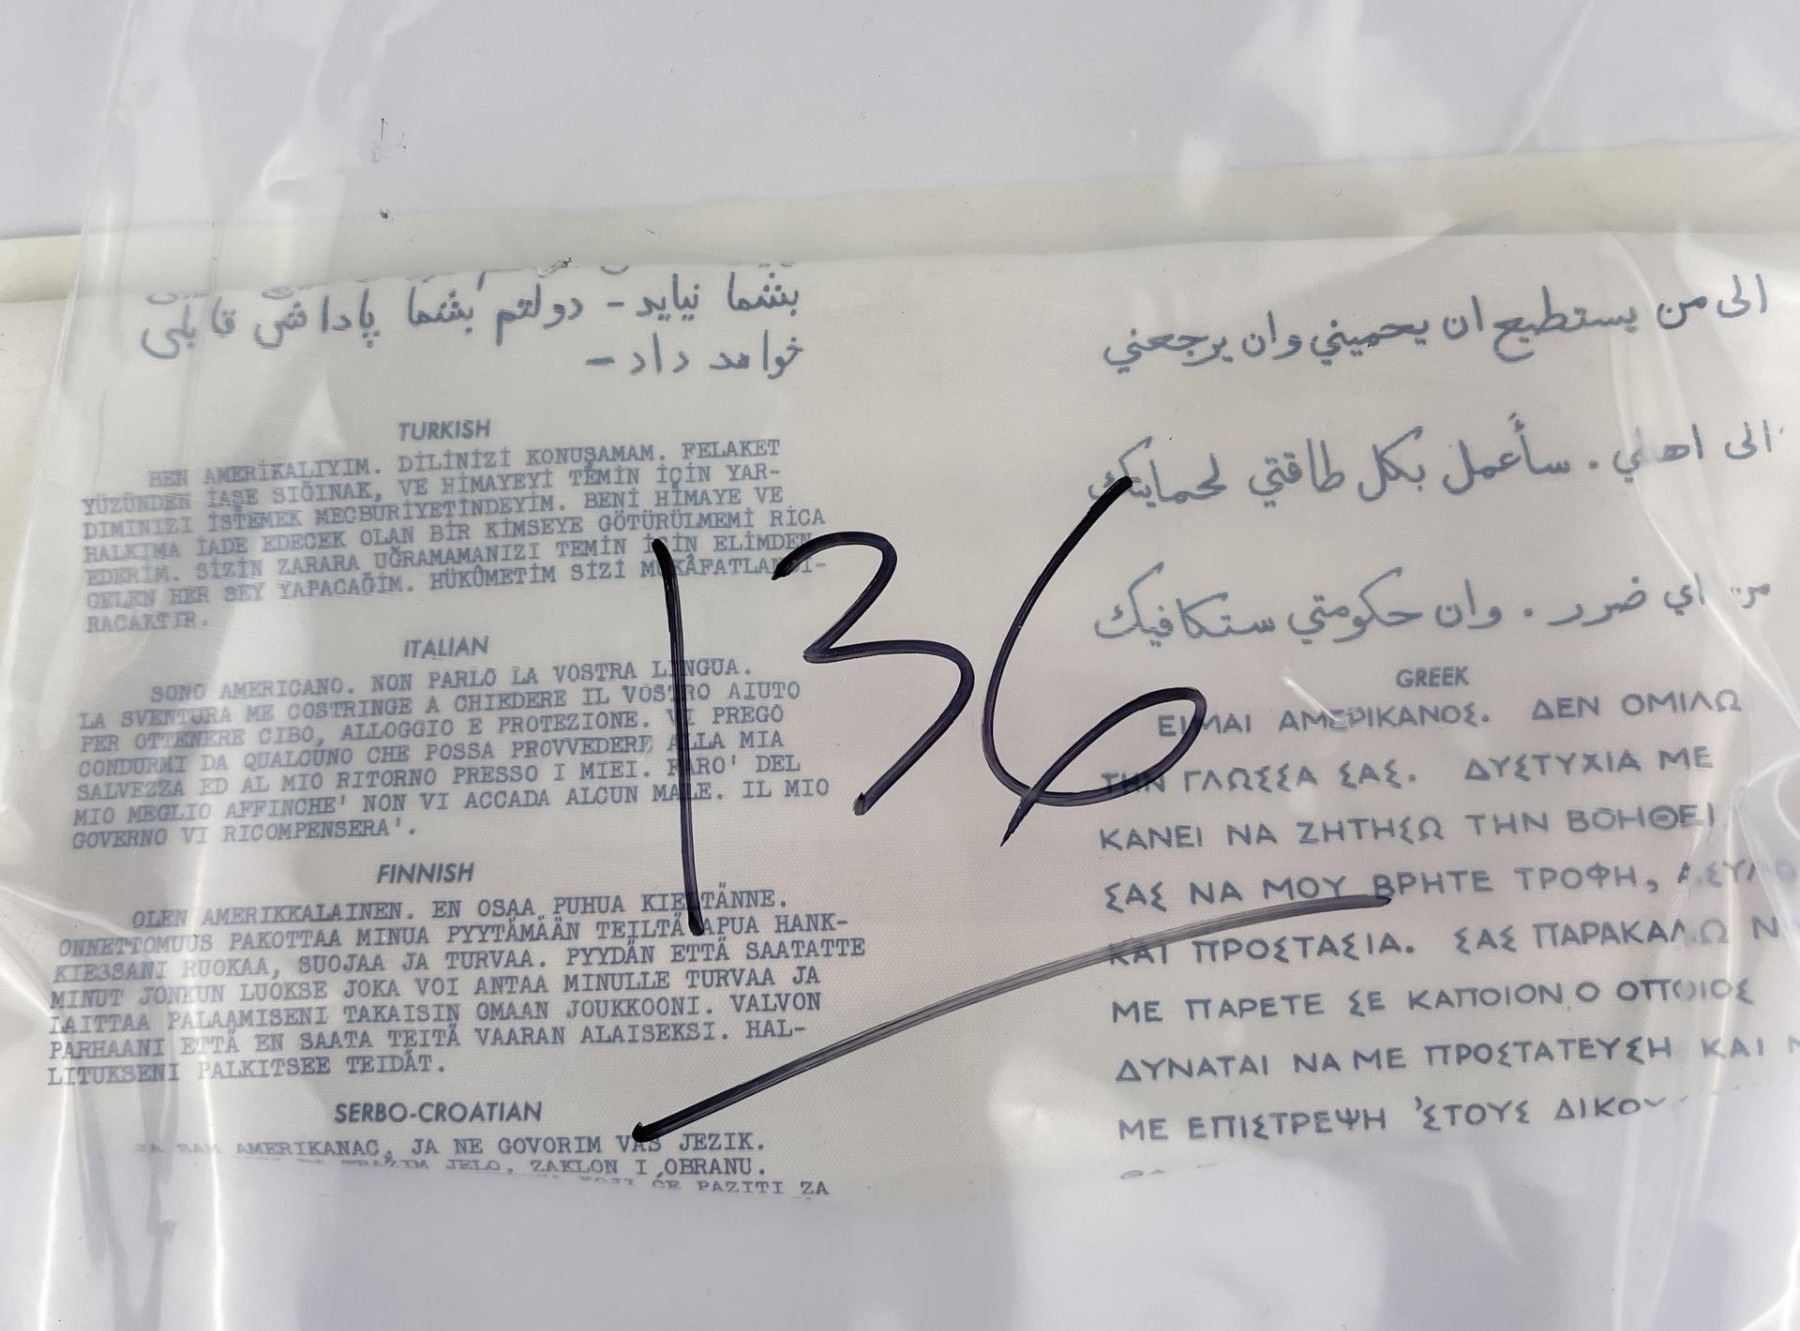 بشما نیاید - دولتم بشما پاداش قابلی
خواهد داد -
TURKISH
BEN AMERİKALIYIM. DİLİNİZİ KONUŞAMAM. FELAKET
YÜZÜNDEN İAŞE SIĞINAK, VE HİMAYEYİ TEMİN İÇİN YAR-
DIMINIZI İSTEMEK MECBURİYETİNDEYİM. BENİ HİMAYE VE
HALKIMA İADE EDECEK OLAN BİR KİMSEYE GÖTÜRÜLMEMİ RİCA
EDERİM. SİZİN ZARARA UĞRAMAMANIZI TEMİN İÇİN ELİMDEN
GELEN HER ŞEY YAPACAĞIM. HÜKÛMETİM SİZİ MÜKÂFATLANDI-
RACAKTIR.
ITALIAN
SONO AMERICANO. NON PARLO LA VOSTRA LINGUA.
LA SVENTURA ME COSTRINGE A CHIEDERE IL VOSTRO AIUTO
PER OTTENERE CIBO, ALLOGGIO E PROTEZIONE. VI PREGO
CONDURMI DA QUALCUNO CHE POSSA PROVVEDERE ALLA MIA
SALVEZZA ED AL MIO RITORNO PRESSO I MIEI. FARO' DEL
MIO MEGLIO AFFINCHE' NON VI ACCADA ALCUN MALE. IL MIO
GOVERNO VI RICOMPENSERA'.
FINNISH
OLEN AMERIKKALAINEN. EN OSAA PUHUA KIELTÄNNE.
ONNETTOMUUS PAKOTTAA MINUA PYYTÄMÄÄN TEILTÄ APUA HANK-
KIESSANI RUOKAA, SUOJAA JA TURVAA. PYYDÄN ETTÄ SAATATTE
MINUT JONKUN LUOKSE JOKA VOI ANTAA MINULLE TURVAA JA
LAITTAA PALAAMISENI TAKAISIN OMAAN JOUKKOONI. VALVON
PARHAANI ETTÄ EN SAATA TEITÄ VAARAN ALAISEKSI. HAL-
LITUKSENI PALKITSEE TEIDÄT.
SERBO-CROATIAN
JA SAM AMERIKANAC, JA NE GOVORIM VAŠ JEZIK.
TRAŽIM JELO, ZAKLON I OBRANU.
KOJI ĆE PAZITI ZA
136
الى من يستطيع ان يحميني وان يرجعني
الى اهلي . سأعمل بكل طاقتي لحمايتك
من اي ضرر . وان حكومتي ستكافيك
GREEK
ΕΙΜΑΙ ΑΜΕΡΙΚΑΝΟΣ. ΔΕΝ ΟΜΙΛΩ
ΤΗΝ ΓΛΩΣΣΑ ΣΑΣ. ΔΥΣΤΥΧΙΑ ΜΕ
ΚΑΝΕΙ ΝΑ ΖΗΤΗΣΩ ΤΗΝ ΒΟΗΘΕΙ
ΣΑΣ ΝΑ ΜΟΥ ΒΡΗΤΕ ΤΡΟΦΗ, ΑΣΥΛΟ
ΚΑΙ ΠΡΟΣΤΑΣΙΑ. ΣΑΣ ΠΑΡΑΚΑΛΩ Ν
ΜΕ ΠΑΡΕΤΕ ΣΕ ΚΑΠΟΙΟΝ Ο ΟΠΟΙΟΣ
ΔΥΝΑΤΑΙ ΝΑ ΜΕ ΠΡΟΣΤΑΤΕΥΣΗ ΚΑΙ
ΜΕ ΕΠΙΣΤΡΕΨΗ 'ΣΤΟΥΣ ΔΙΚΟΥ